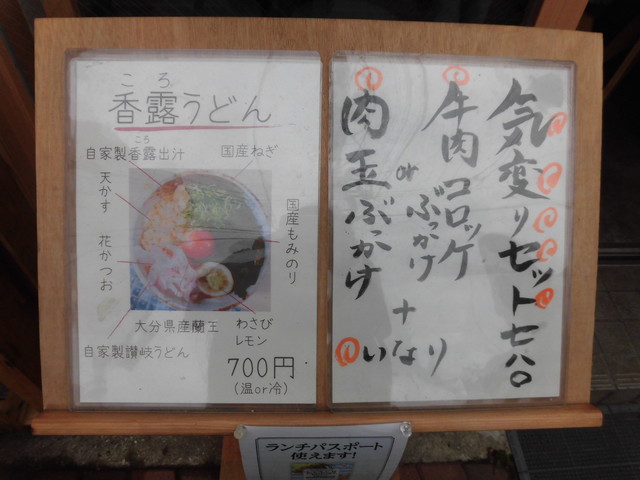 ころ
香露うどん
ころ
自家製香露出汁
国産ねぎ
天かす
花かつお
国産もみのり
大分県産蘭王
わさび
レモン
自家製讃岐うどん
700円
(温or冷)
気変りセット七八〇
牛肉コロッケ
ぶっかけ
or
肉玉ぶっかけ
+
いなり
ランチパスポート
使えます!